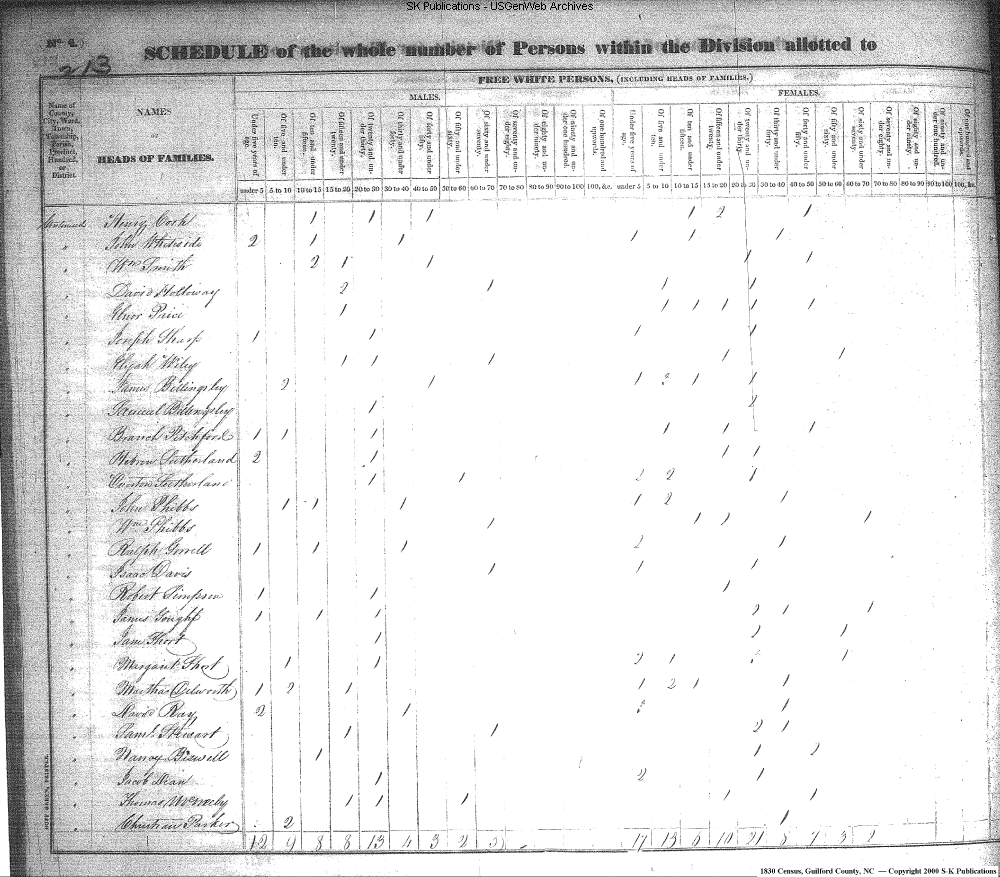 SK Publications - USGenWeb Archives
No. 4.
213
SCHEDULE of the whole number of Persons within the Division allotted to
FREE WHITE PERSONS, (INCLUDING HEADS OF FAMILIES.)
MALES. FEMALES.
Name of County, City, Ward, Town, Township, Parish, Precinct, Hundred, or District.
NAMES
HEADS OF FAMILIES.
Under five years of age. Of five and under ten. Of ten and under fifteen. Of fifteen and under twenty. Of twenty and under thirty. Of thirty and under forty. Of forty and under fifty. Of fifty and under sixty. Of sixty and under seventy. Of seventy and under eighty. Of eighty and under ninety. Of ninety and under one hundred. Of one hundred and upwards. Under five years of age. Of five and under ten. Of ten and under fifteen. Of fifteen and under twenty. Of twenty and under thirty. Of thirty and under forty. Of forty and under fifty. Of fifty and under sixty. Of sixty and under seventy. Of seventy and under eighty. Of eighty and under ninety. Of ninety and under one hundred. Of one hundred and upwards.
under 5 5 to 10 10 to 15 15 to 20 20 to 30 30 to 40 40 to 50 50 to 60 60 to 70 70 to 80 80 to 90 90 to 100 100, &c. under 5 5 to 10 10 to 15 15 to 20 20 to 30 30 to 40 40 to 50 50 to 60 60 to 70 70 to 80 80 to 90 90 to 100 100, &c.
Henry Cook 1 1 1 1 2 1
John Whiteside 2 1 1 1 1 1
Wm Smith 2 1 1 1 1
David Holloway 2 1 1 1
Price 1 1 1 1 1 1
Joseph Sharp 1 1 1 1
Elijah Wiley 1 1 1 1 1
James Billingsley 2 1 1 2 1 1
Samuel Billingsley 1 2
Branch Pitchford 1 1 1 1 1 1
Sutherland 2 1 1 1
Sutherland 1 1 2 1
John Phibbs 1 1 1 1 2 1
Wm Phibbs 1 1 1 1
Ralph Gorrell 1 1 1 2 1
Isaac Davis 1 1 1
Robert Simpson 1 1 1
James Gought 1 1 1 2 1 1
Short 1 2 1
Margaret Short 1 1 2 1 1
Martha Dilworth 1 2 1 1 2 1 1
David Ray 2 1 1
Saml. Stewart 1 1 2 1
Nancy 1 1 2
Jacob Dean 1 2 1
Thomas 1 1 1 1 1
Christian Parker 2 1
12 9 8 8 13 4 3 2 17 13 6 10 21 8 7 3 2
1830 Census, Guilford County, NC — Copyright 2000 S-K Publications